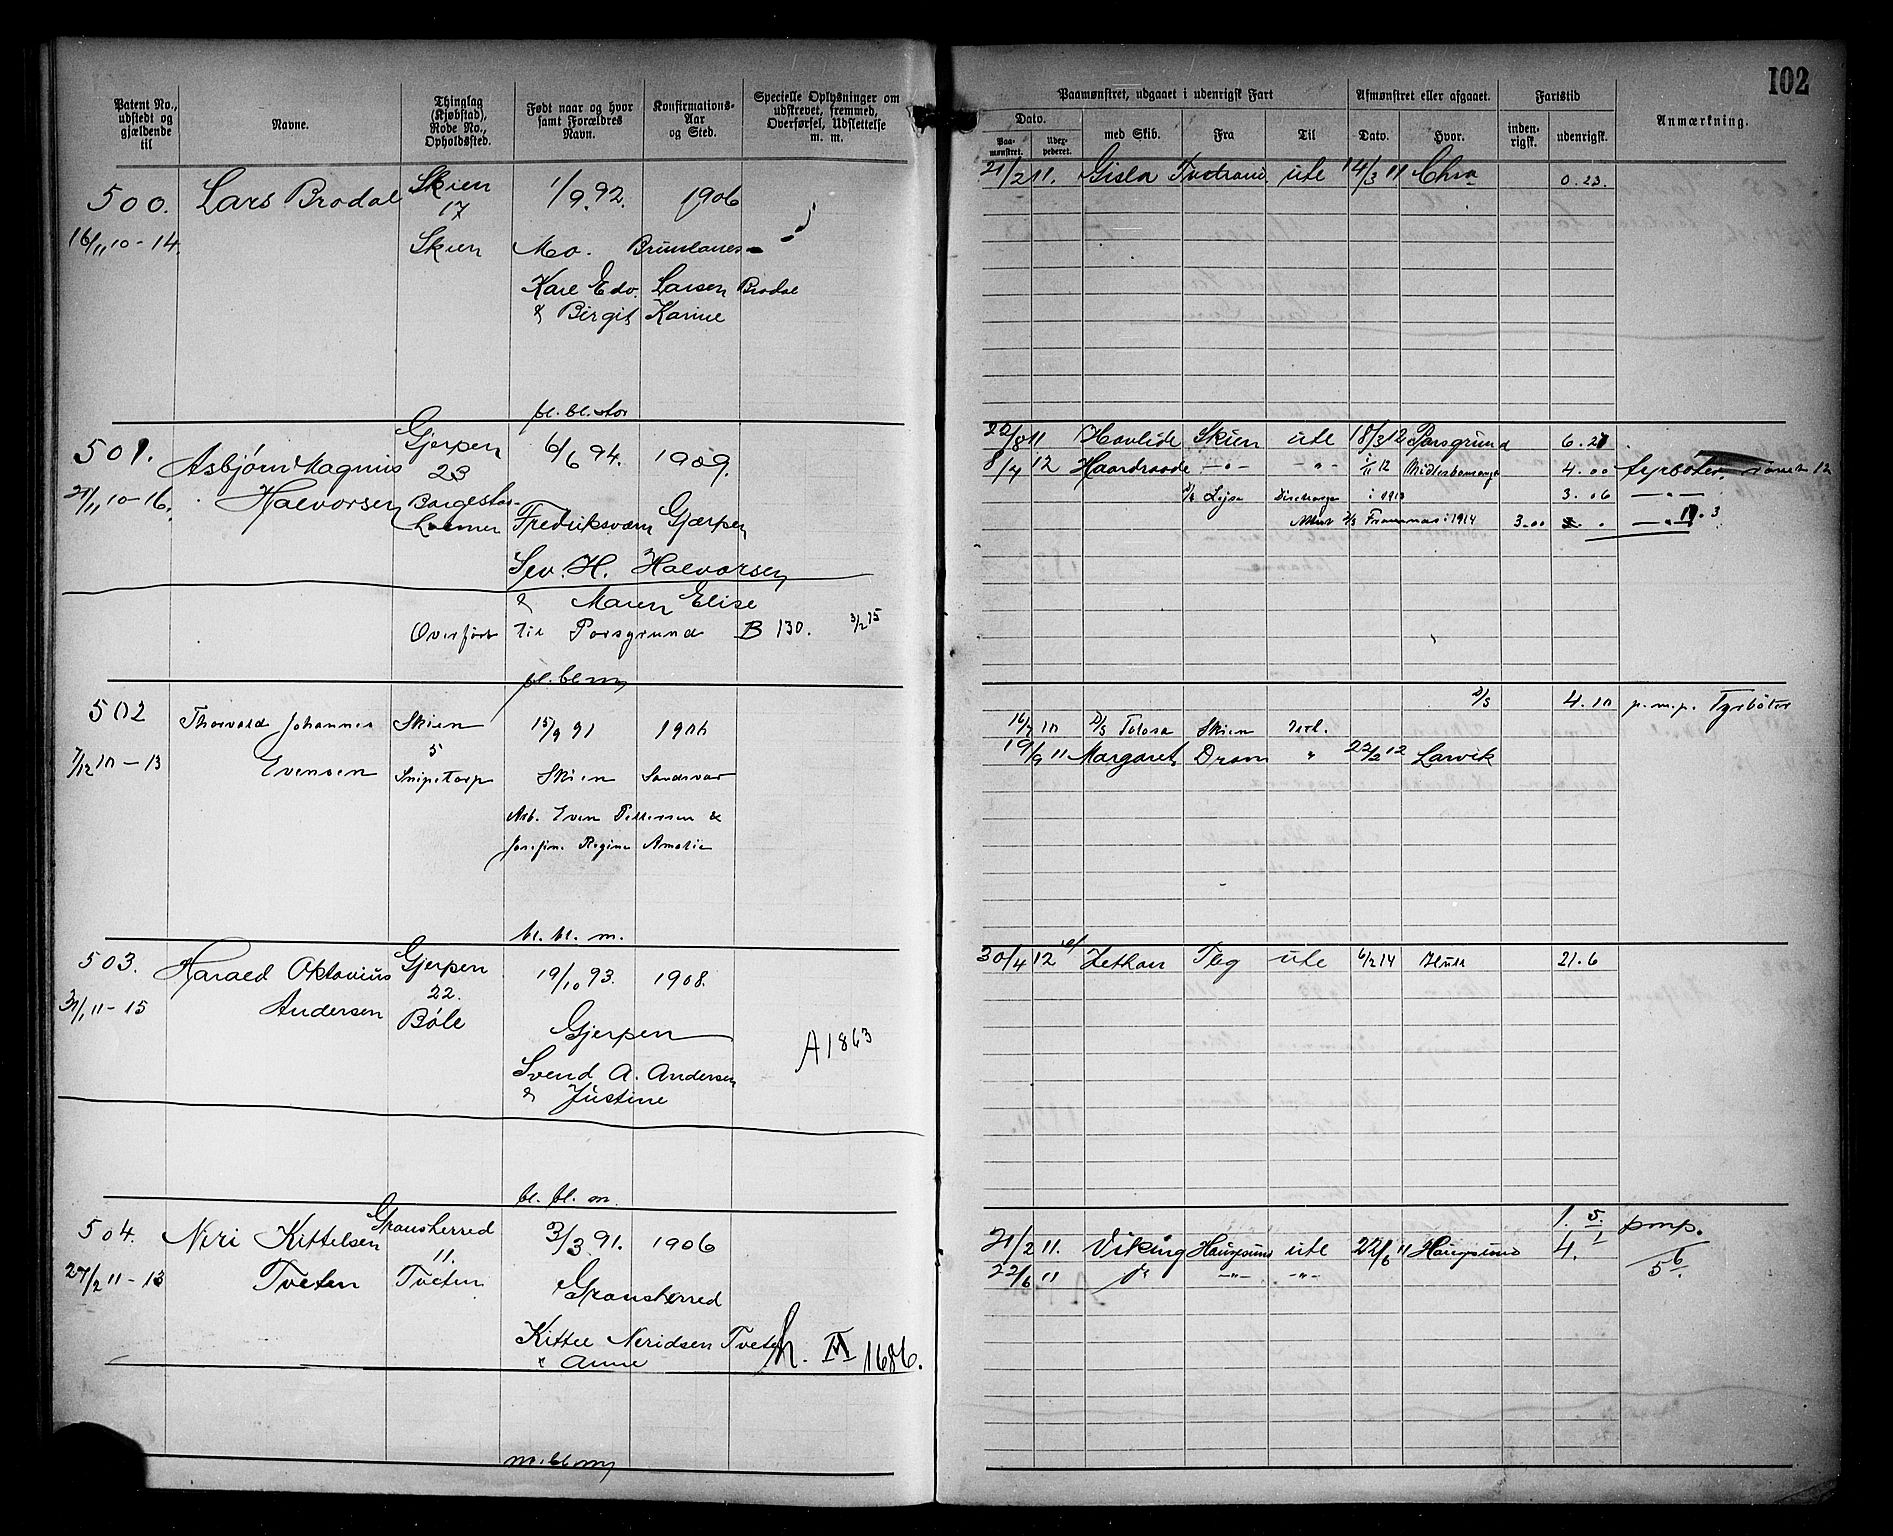 102
Patent No., udstedt og gjældende til
Navne.
Thinglag (Kjøbstad), Rode No., Opholdssted.
Født naar og hvor samt Forældres Navn.
Konfirmations-Aar og Sted.
Specielle Oplysninger om udskrevet, fremmed, Overførsel, Udslettelse m. m.
Paamønstret, udgaaet i udenrigsk Fart
Afmønstret eller afgaaet.
Fartstid
Anmærkning.
Dato.
med Skib.
Fra
Til
Dato.
Hvor.
inden-rigsk.
udenrigsk.
500. Lars Brodal Skien 1/9.92. 1906
17
16/11 10-14. Skien Mo. Brunlanes
Karl Edv. Larsen Brodal
& Birgit Karine
21/2 11. Gisla ute 14/3 11 Chra 0.23.
bl. bl. stor
501. Asbjørn Magnus Gjerpen 6/6 94. 1909.
23
21/11 10-16. Halvorsen Borgestad
Fredriksværn Gjerpen
Sev. H. Halvorsen
& Maren Elise
Overført til Porsgrund B 130. 3/2 15
22/8 11 Havlide Skien ute 18/3 12 Porsgrund 6.21
8/7 12 Haardraade -"- -"- 12 4.00 fyrbøter
i 1913 3.06 -"-
i 1914 3.00 -"-
bl. bl. m
502 Thorvald Johannes Skien 15/9 91 1906
5
7/12 10-13 Evensen Snipetorp Skien Sandsvær
Arb. Even Pettersen &
Josefine Regine Amalie
D/S 4.10 p.m.p. Fyrbøter
16/7 10 D/S Tolosa Skien
19/9 11 Margaret Dram " 22/2 12 Larvik
bl. bl. m.
503. Harald Oktavius Gjerpen 19/10 93. 1908.
22.
31/1 11-15 Andersen Bøle
Gjerpen
Svend A. Andersen
& Justine
A 1863
30/4 12 ute 6/2 14 Hull 21.6
bl. bl. m.
504. Neri Kittelsen Gransherred 3/3. 91. 1906
11.
27/2 11-13 Tveten Tveten
Gransherred
Kittel Neridsen Tveten
" Anne
h. II 1686.
1. 5. pmp.
21/2 11. Viking Haugesund ute 22/6 11 Haugesund 4. 1
22/6 11 do -"- -"- 5 6
m. bl. m